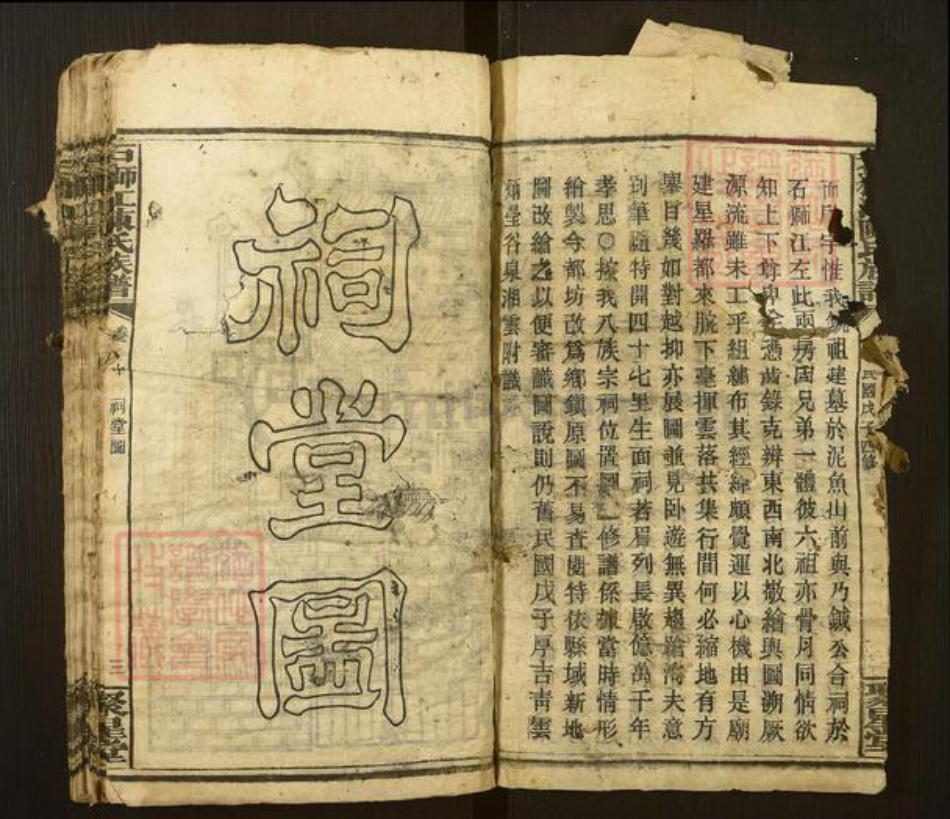 民國戊子四修
聚星堂
惟我
祖建墓於泥魚山前與乃鉞公合祠於
石獅江左此兩房固兄弟一體彼六祖亦骨月同情欲
知上下尊卑
憑齒錄克辨東西南北撤繪輿圖溯厥
源流雖未工乎組繡布其經緯頗覺運以心機由是廟
建星羅都來腕下毫揮雲落共集行間何必縮地有方
舉目幾如對越抑亦展圖並見卧遊無異
夫意
到筆隨特開四十七里生面祠若眉列長啟億萬千年
孝思○按我八族宗祠位置圖一修譜係據當時情形
繪製今都坊改爲鄉鎮原圖不易查閱特依縣域新地
圖改繪之以便審識圖說則仍舊民國戊子厚吉靑雲
炳瑩谷泉湘雲附識
祠堂圖
石獅江陳氏族譜
卷八十
祠堂圖
三
聚星堂